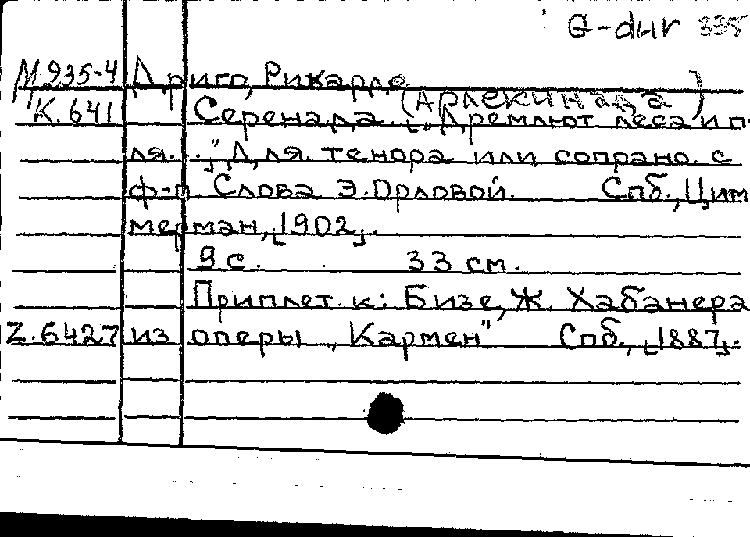 G-dur 335
М 935-4 Дриго, Рикардо
К. 641 Серенада. (Арлекинада)
["Дремлют леса и по
ля. . ." Для тенора или сопрано с
ф-п Слова Э. Орловой. Спб., Цим
мерман, [1902].
9 с. 33 см.
Приплет. к: Бизе, Ж. Хабанера
Z.6427 из оперы "Кармен" Спб., [1887].